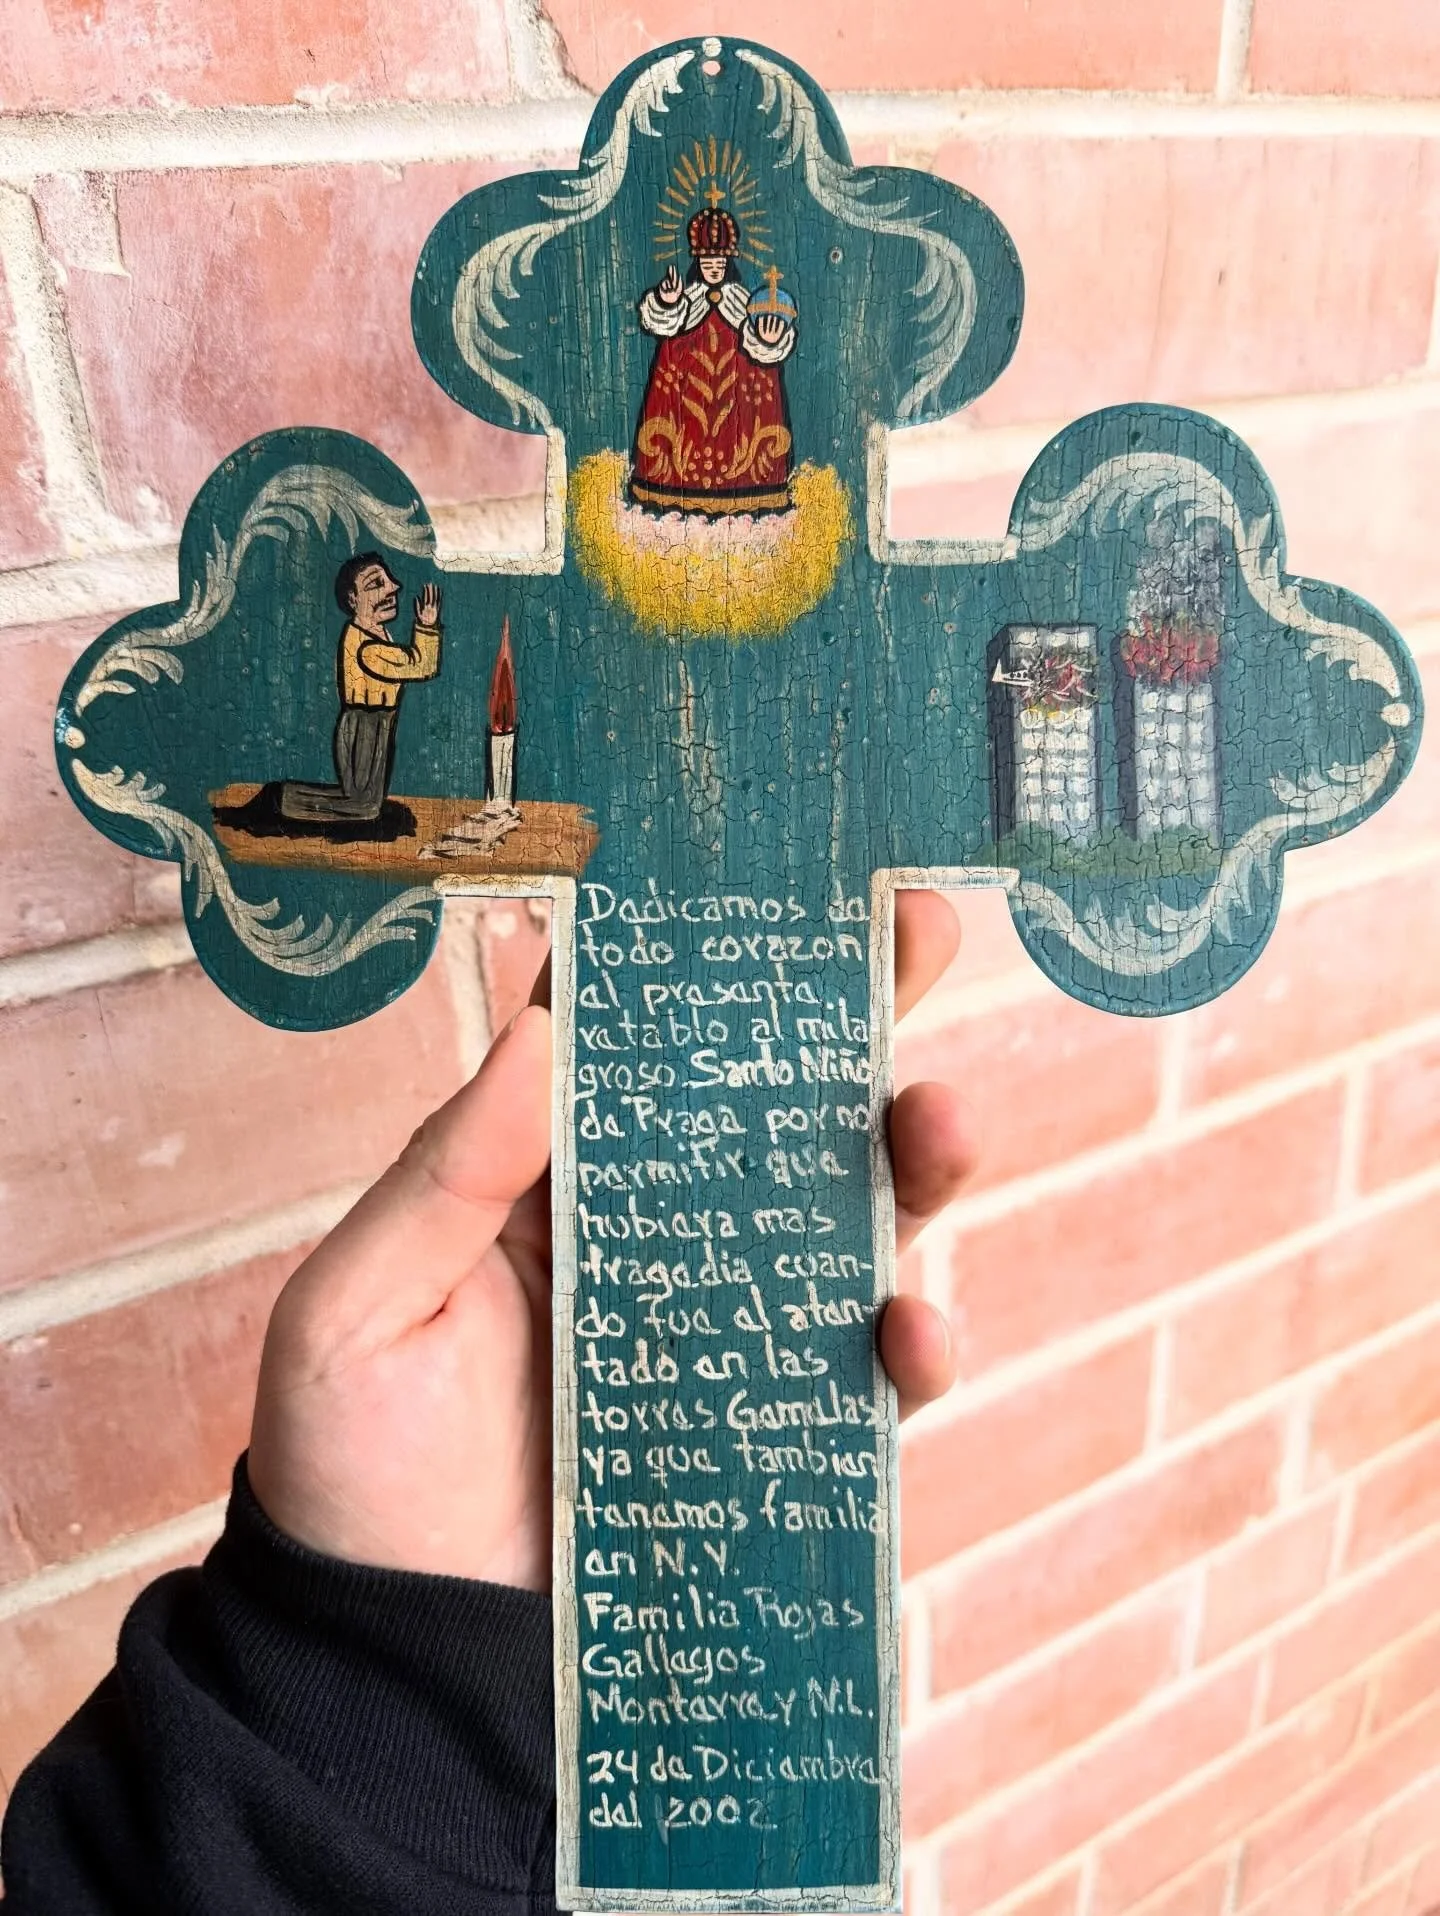 Dedicamos de
todo corazon
el presente
retablo al mila
groso Santo Niño
de Praga por no
permitir que
hubiera mas
tragedia cuan-
do fue el aten-
tado en las
torres Gemelas
ya que tambien
tenemos familia
en N.Y.
Familia Rojas
Gallegos
Monterrey N.L.
24 de Diciembre
del 2002